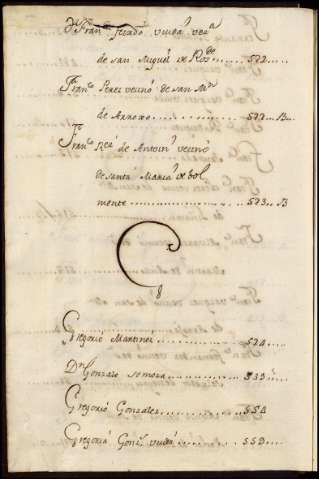 Franca ... viuda veca
de san Miguel ... 572
Franco Perez vecino de san Mn
de Arroxo 572 B
Franco ... de Antoin vecino
de santa Maria de bol
mente 573 B
G
Gregorio Martinez 524
Dn Gonzalo somoza 535
Gregorio Gonzalez 554
Gregoria Gonz. viuda 559